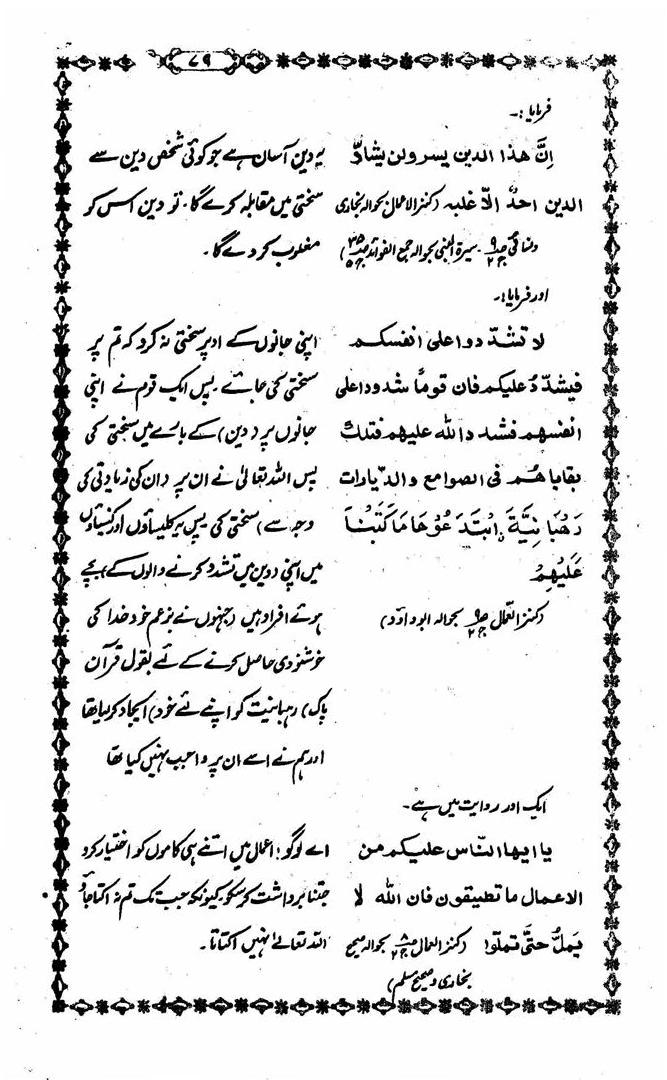 ۷۹
فرمایا:۔
اِنَّ هذا الدین یسر ولن یشادّ
الدین احدٌ الّا غلبه (کنز الاعمال بحوالہ بخاری
ونسائی ص۹ ج۲۔ سیرۃ النبی بحوالہ جمع الفوائد ص۳۵ ج۵)
یہ دین آسان ہے جو کوئی شخص دین سے
سختی میں مقابلہ کرے گا۔ تو دین اس کو
مغلوب کر دے گا۔
اور فرمایا:۔
لا تشدّدوا علی انفسکم
فیشدّدُ علیکم فان قوماً شدودا علی
انفسهم فشدد الله علیهم فتلك
بقایاهُم فی الصوامع والدّیاوات
رَهْبَانِیَّةَ ابْتَدَعُوْهَا مَا کَتَبْنَا
عَلَیْهِمْ
(کنز العمّال ص۹ ج۲ بحوالہ ابوداؤد)
اپنی جانوں کے اوپر سختی نہ کرو کہ تم پر
سختی کی جائے۔ پس ایک قوم نے اپنی
جانوں پر (دین) کے بارے میں سختی کی
پس اللہ تعالیٰ نے ان پر (ان کی زیادتی کی
وجہ سے) سختی کی پس یہ کلیساؤں اور کنیساؤں
میں اپنی (دین میں تشدد کرنے والوں کے) بچے
ہوئے افراد ہیں (جنہوں نے بزعم خود خدا کی
خوشنودی حاصل کرنے کے لئے بقول قرآن
پاک) رہبانیت کو اپنے لئے خود) ایجاد کر لیا تھا
اور ہم نے اسے ان پر واجب نہیں کیا تھا
ایک اور روایت میں ہے۔
یا ایها النّاس علیکم من
الاعمال ما تطیقون فان الله لا
یملّ حتّٰی تملّوا (کنز العمال ص۸ ج۲ بحوالہ صحیح
بخاری و صحیح مسلم)
اے لوگو! اعمال میں اتنے ہی کاموں کو اختیار کرو
جتنا برداشت کر سکو۔ کیونکہ جب تک تم نہ اکتا جاؤ
اللہ تعالیٰ نہیں اکتاتا۔